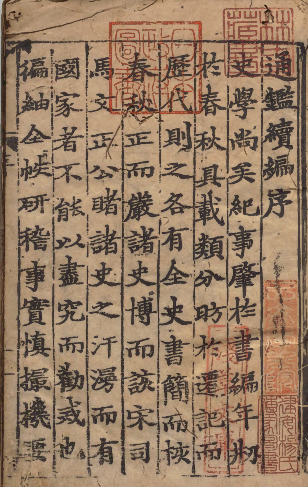 通鑑續編序
史學尚矣紀事肇於書編年刱
於春秋具載類分昉於遷記而
歷代則之各有全史書簡而核
春秋正而嚴諸史博而該宋司
馬文正公睹諸史之汗漫而有
國家者不能以盡究而勸戒也
徧紬全帙研稽事實慎撮機要